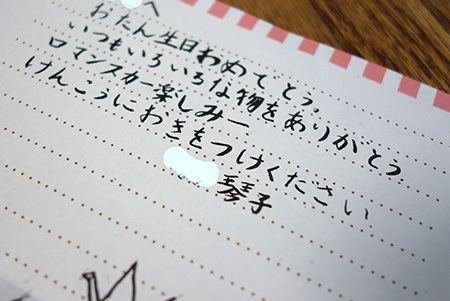 へ
おたん生日おめでとう。
いつもいろいろな物をありがとう
ロマンスカー楽しみー
けんこうにおきをつけください
琴子